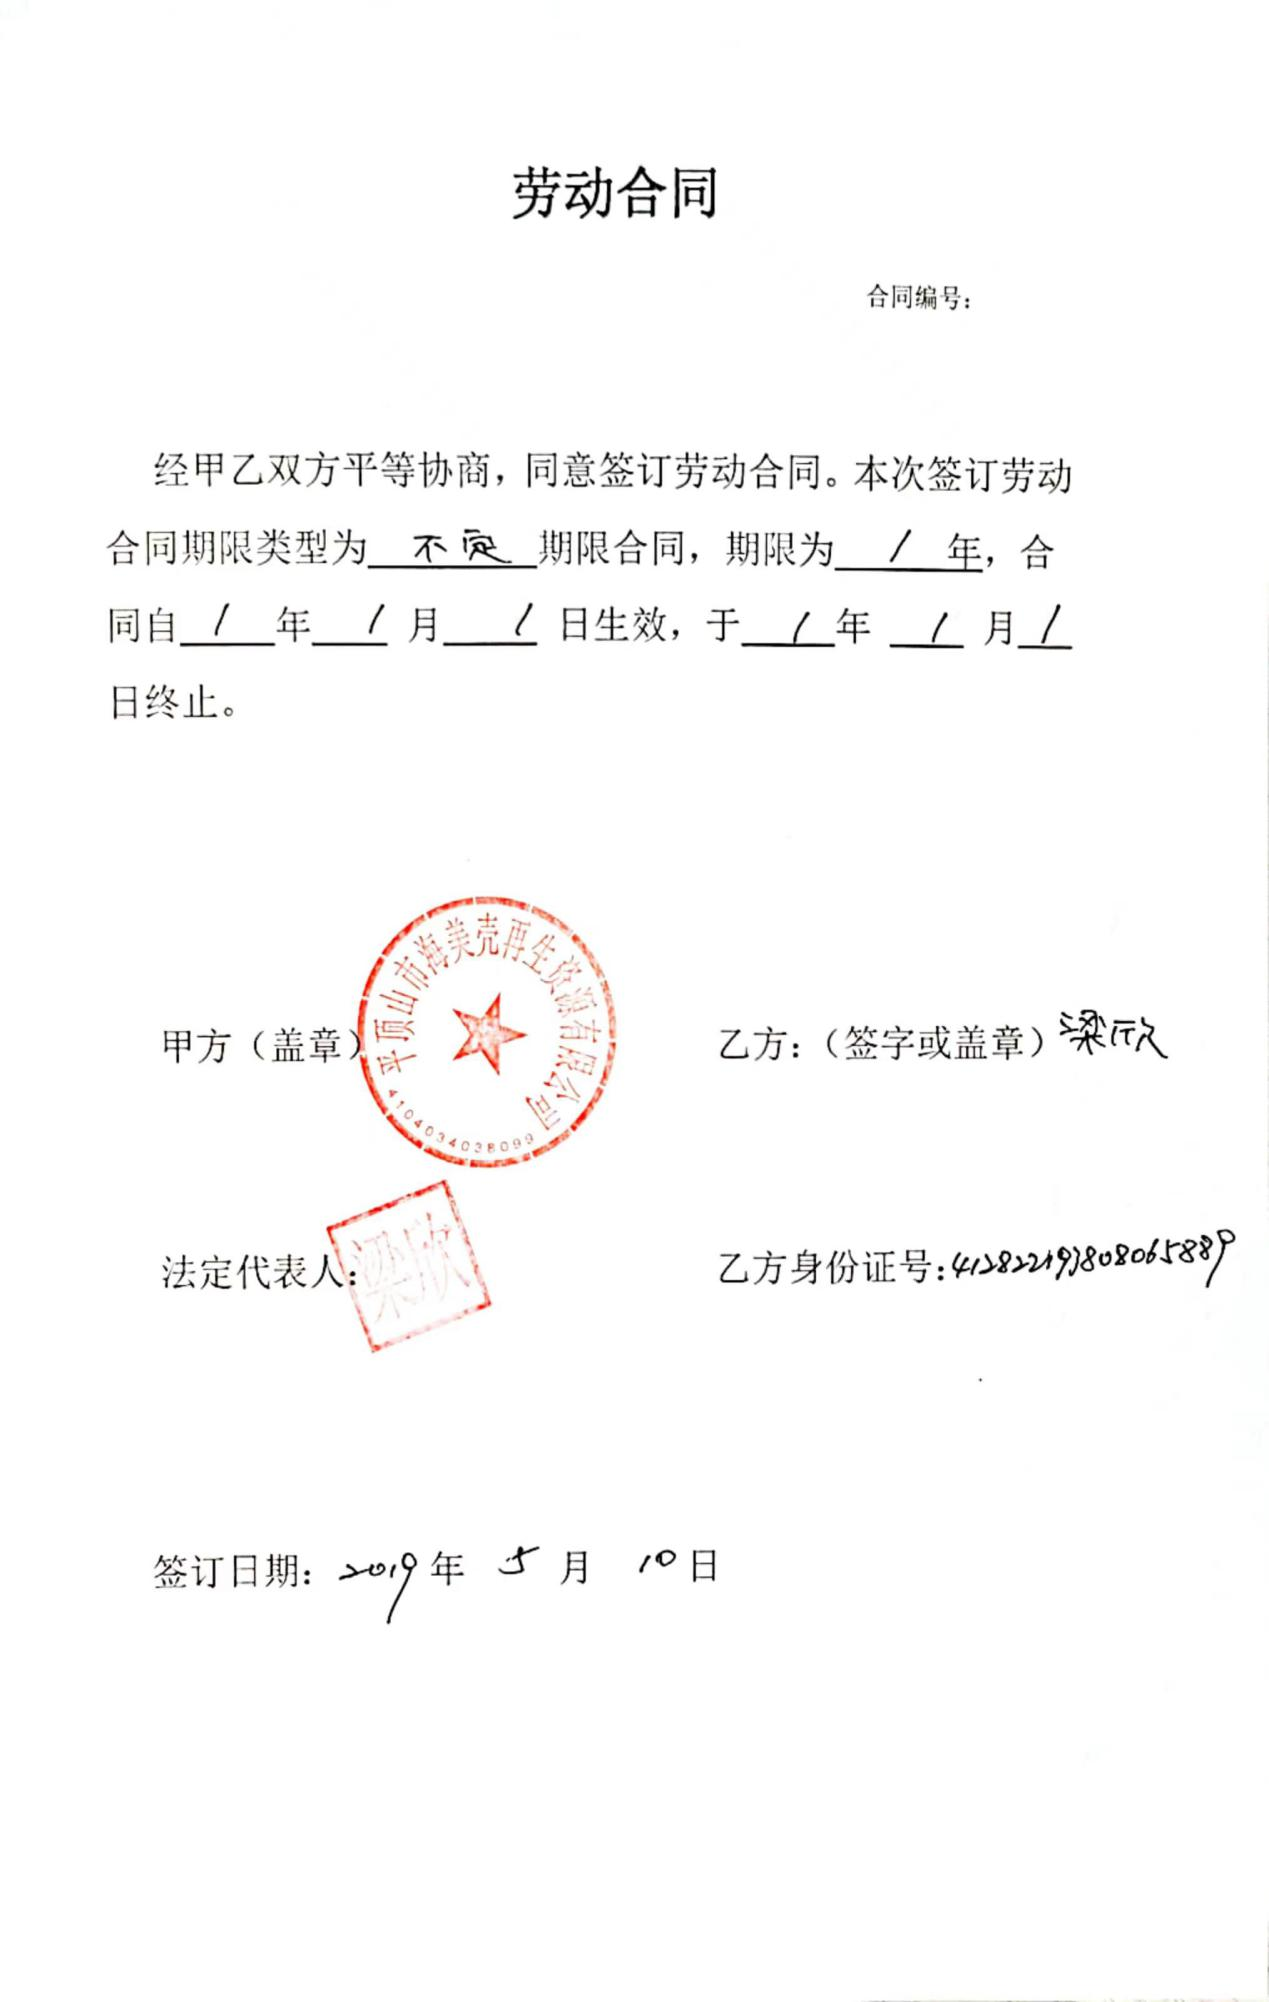 劳动合同
合同编号：
经甲乙双方平等协商，同意签订劳动合同。本次签订劳动
合同期限类型为 不定 期限合同，期限为 / 年，合
同自 / 年 / 月 / 日生效，于 / 年 / 月 /
日终止。
平顶山市海美壳再生资源有限公司
4104034038099
甲方（盖章） 乙方：（签字或盖章）梁欣
法定代表人： 梁欣 乙方身份证号：
签订日期：2019年 5 月 10日